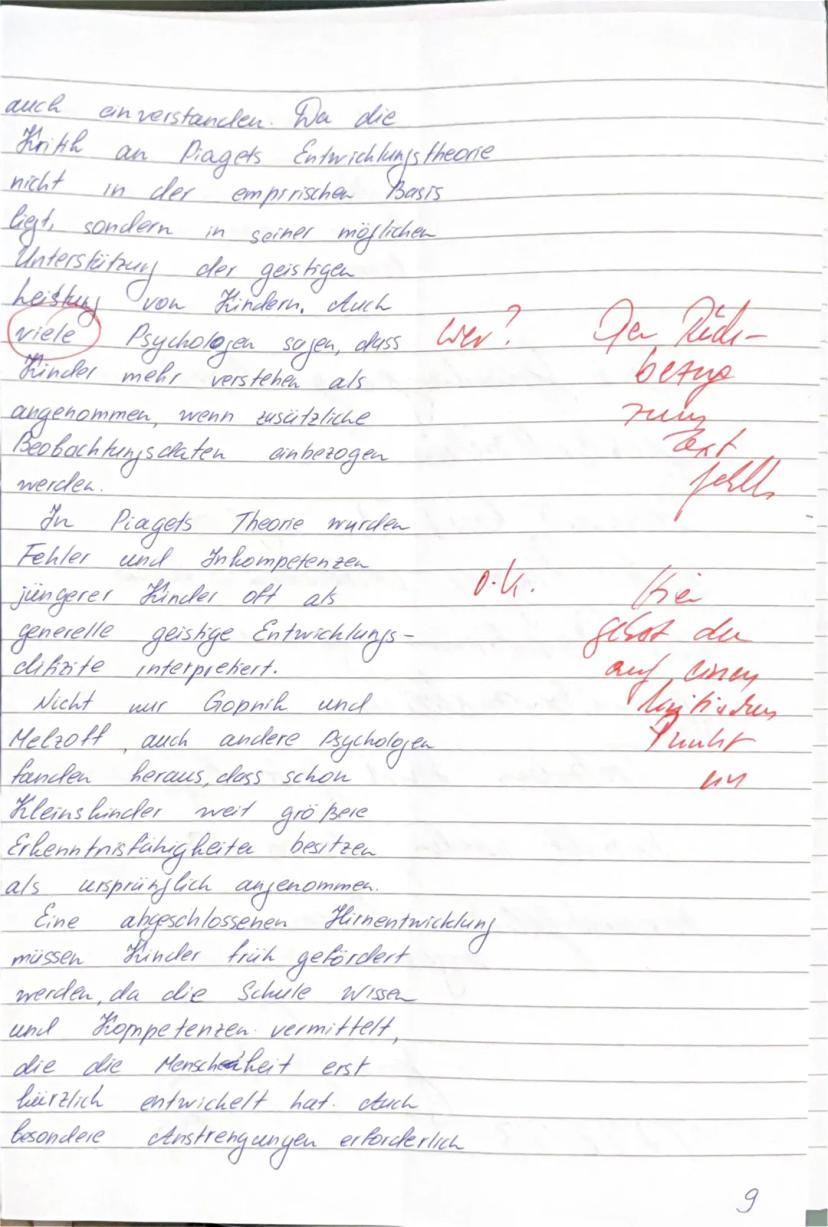 auch einverstanden. Da die
Kritik an Piagets Entwicklungstheorie
nicht in der empirischen Basis
liegt, sondern in seiner möglichen
Unterstützung der geistigen
Leistung von Kindern. Auch
viele Psychologen sagen, dass wer? Der Rück-
Kinder mehr verstehen als bezug
angenommen, wenn zusätzliche zum
Beobachtungsdaten einbezogen Text
werden. fehlt
In Piagets Theorie wurden
Fehler und Inkompetenzen
jüngerer Kinder oft als o.k. Hier
generelle geistige Entwicklungs- gehst du
difizite interpretiert. auf einen
Nicht nur Gopnik und kritischen
Melzoff, auch andere Psychologen Punkt
fanden heraus, dass schon ein
Kleinskinder weit größere
Erkenntnisfähigkeiten besitzen
als ursprünglich angenommen.
Eine abgeschlossenen Hirnentwicklung
müssen Kinder früh gefördert
werden, da die Schule Wissen
und Kompetenzen vermittelt,
die die Menschheit erst
kürzlich entwickelt hat. Auch
besondere Anstrengungen erforderlich
9